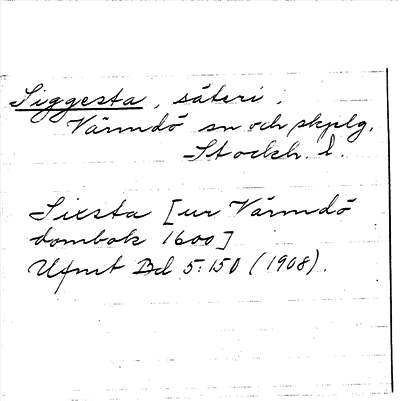 Siggesta, säteri,
Värmdö sn och skplg,
Stockh. l.
Sixsta [ur Värmdö
dombok 1600]
Ufmt Bd 5:150 (1908).